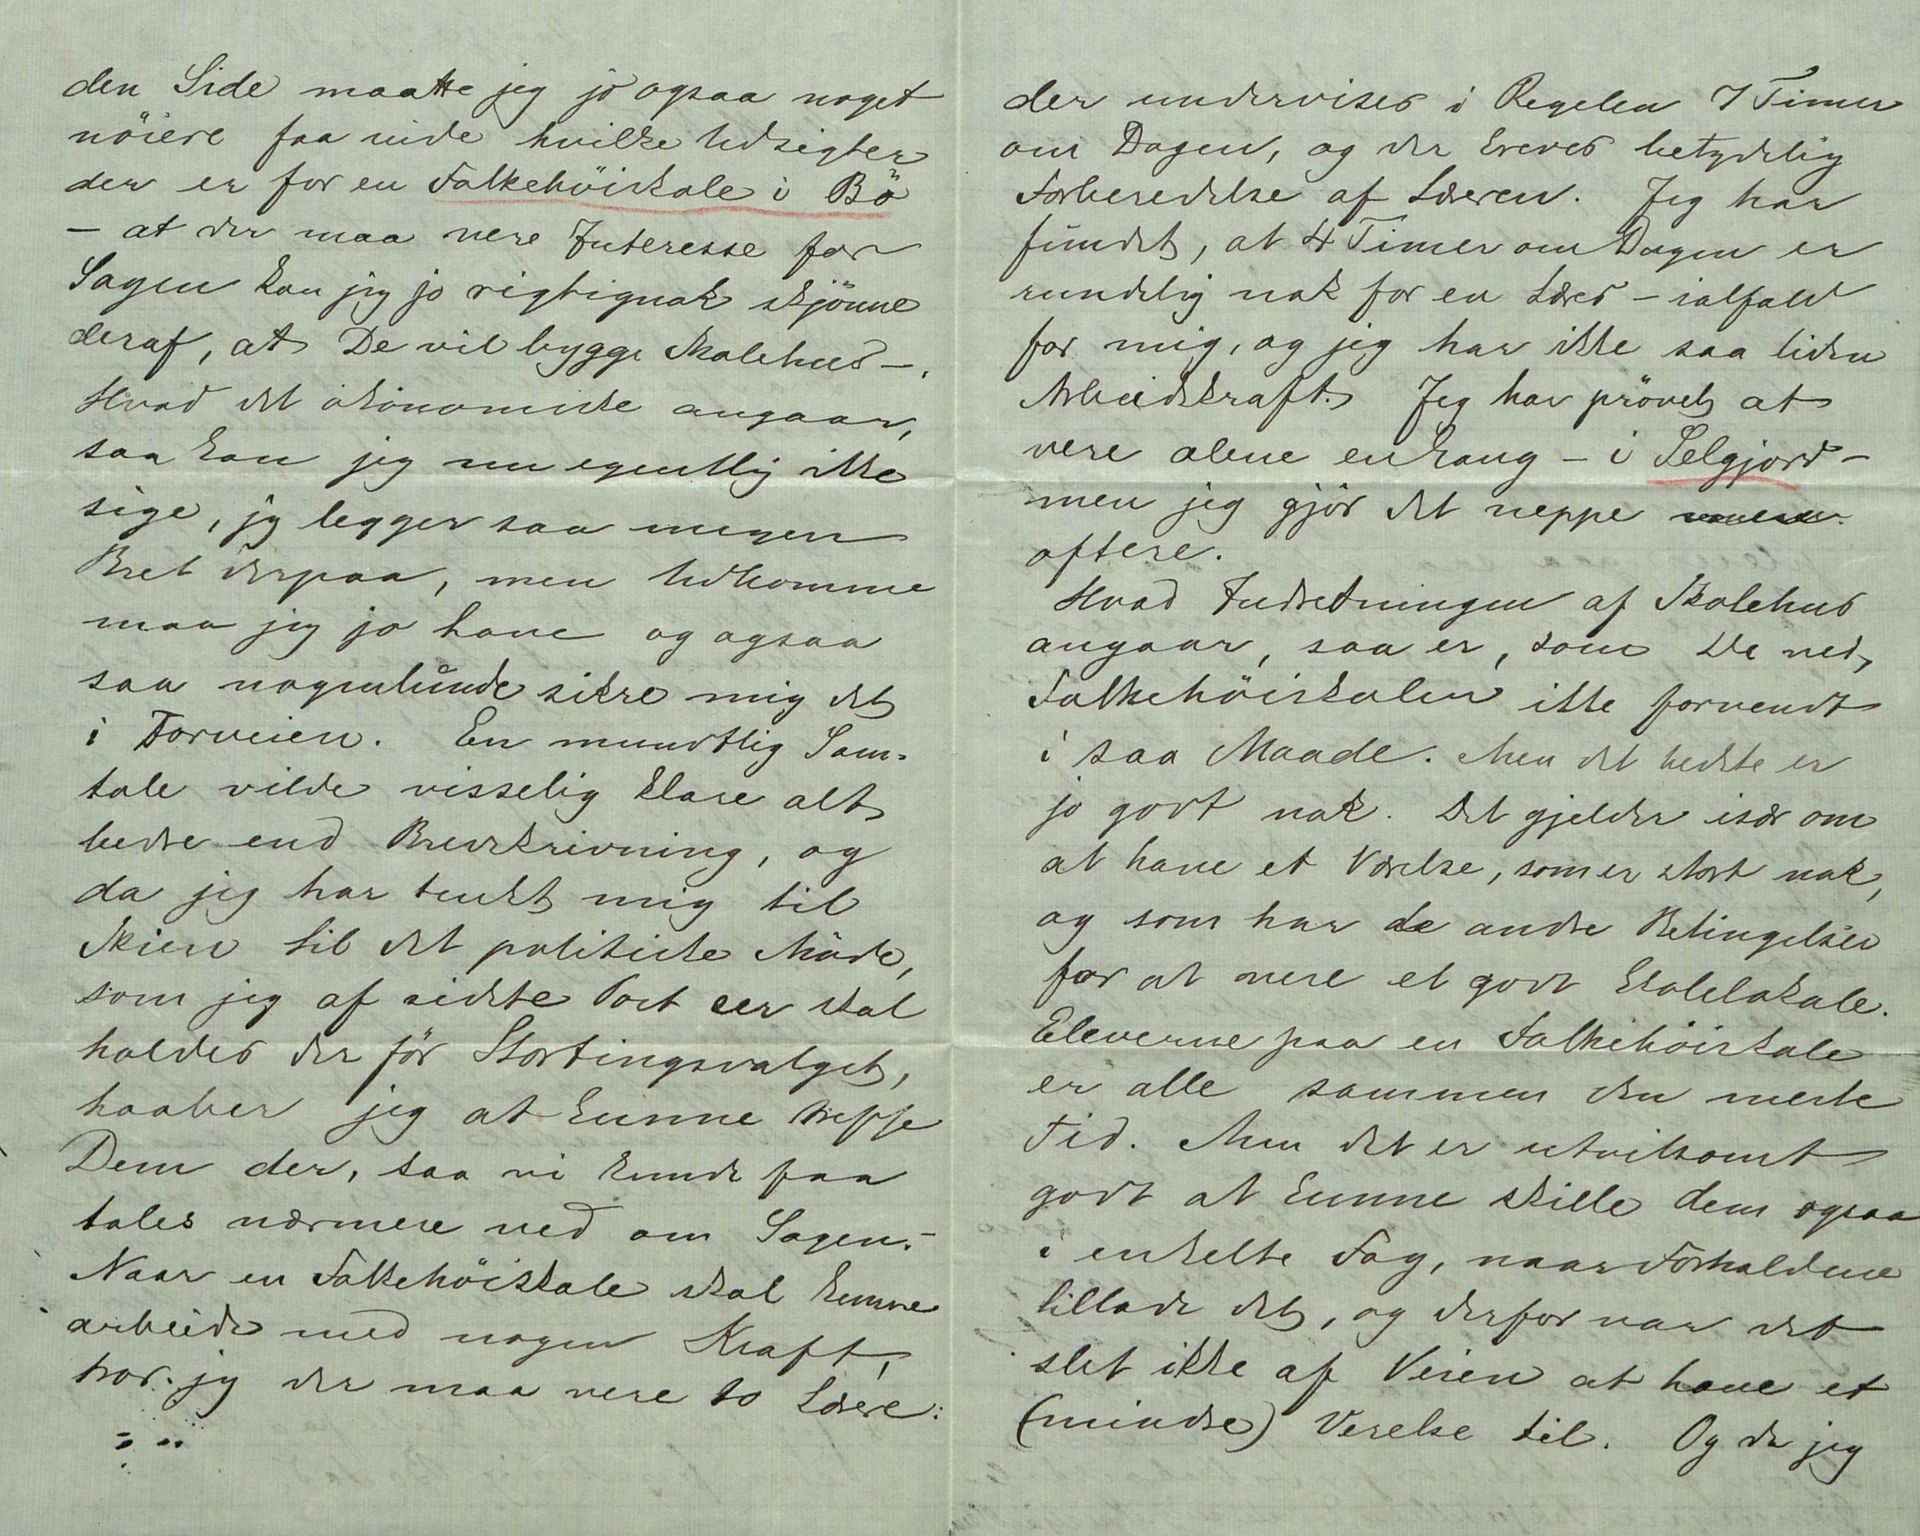 den Side maatte jeg jo ogsaa noget
nöiere faa vide hvilke Udsigter
der er for en Folkehöiskole i Bö
– at der maa vere Interesse for
Sagen kan jeg jo rigtignok skjönne
deraf, at De vil bygge Skolehus –.
Hvad det ökonomiske angaar,
saa kan jeg nu egentlig ikke
sige, jg legger saa megen
Vegt derpaa, men Udkomme
maa jeg jo have og ogsaa
saa nogenlunde sikre mig det
i Forveien. En mundtlig Sam-
tale vilde visselig klare alt
bedre end Brevskrivning, og
da jeg har tenkt mig til
Skien til det politiske Möde,
som jeg af sidste Post ser skal
holdes der för Stortingsvalget,
haaber jeg at kunne treffe
Dem der, saa vi kunde faa
tales nærmere ved om Sagen.–
Naar en Folkehöiskole skal kunne
arbeide med nogen Kraft,
tror jeg der maa vere to Lærere:
der undervises i Regelen 7 Timer
om Dagen, og der kreves betydelig
Forberedelse af Læreren. Jeg har
fundet, at 4 Timer om Dagen er
rundelig nok for en Lærer – ialfald
for mig, og jeg har ikke saa liden
Arbeidskraft. Jeg har prövet at
vere alene en Gang – i Selgjord –
men jeg gjör det neppe
oftere.
Hvad Indretningen af Skolehus
angaar, saa er, som De ved,
Folkehöiskolen ikke forvendt
i saa Maade. Men det bedste er
jo godt nok. Det gjelder især om
at have et Værelse, som er stort nok,
og som har de andre Betingelser
for at vere et godt Skolelokale.
Eleverne paa en Folkehöiskole
er alle sammen den meste
Tid. Men det er utvilsomt
godt at kunne skille dem ogsaa
i enkelte Fag, naar Forholdene
tillade det, og derfor var det
slet ikke af Veien at have et
(mindre) Verelse til. Og da jeg